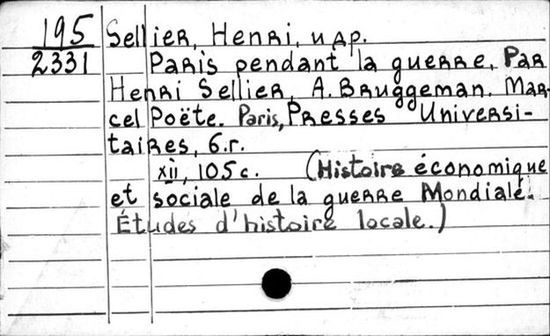 195 Sellier, Henri, и др.
2331 Paris pendant la guerre. Par
Henri Sellier, A. Bruggeman. Mar-
cel Poëte. Paris, Presses Universi-
taires, б.г.
xii, 105 c. (Histoire économique
et sociale de la guerre Mondiale.
Études d'histoire locale.)